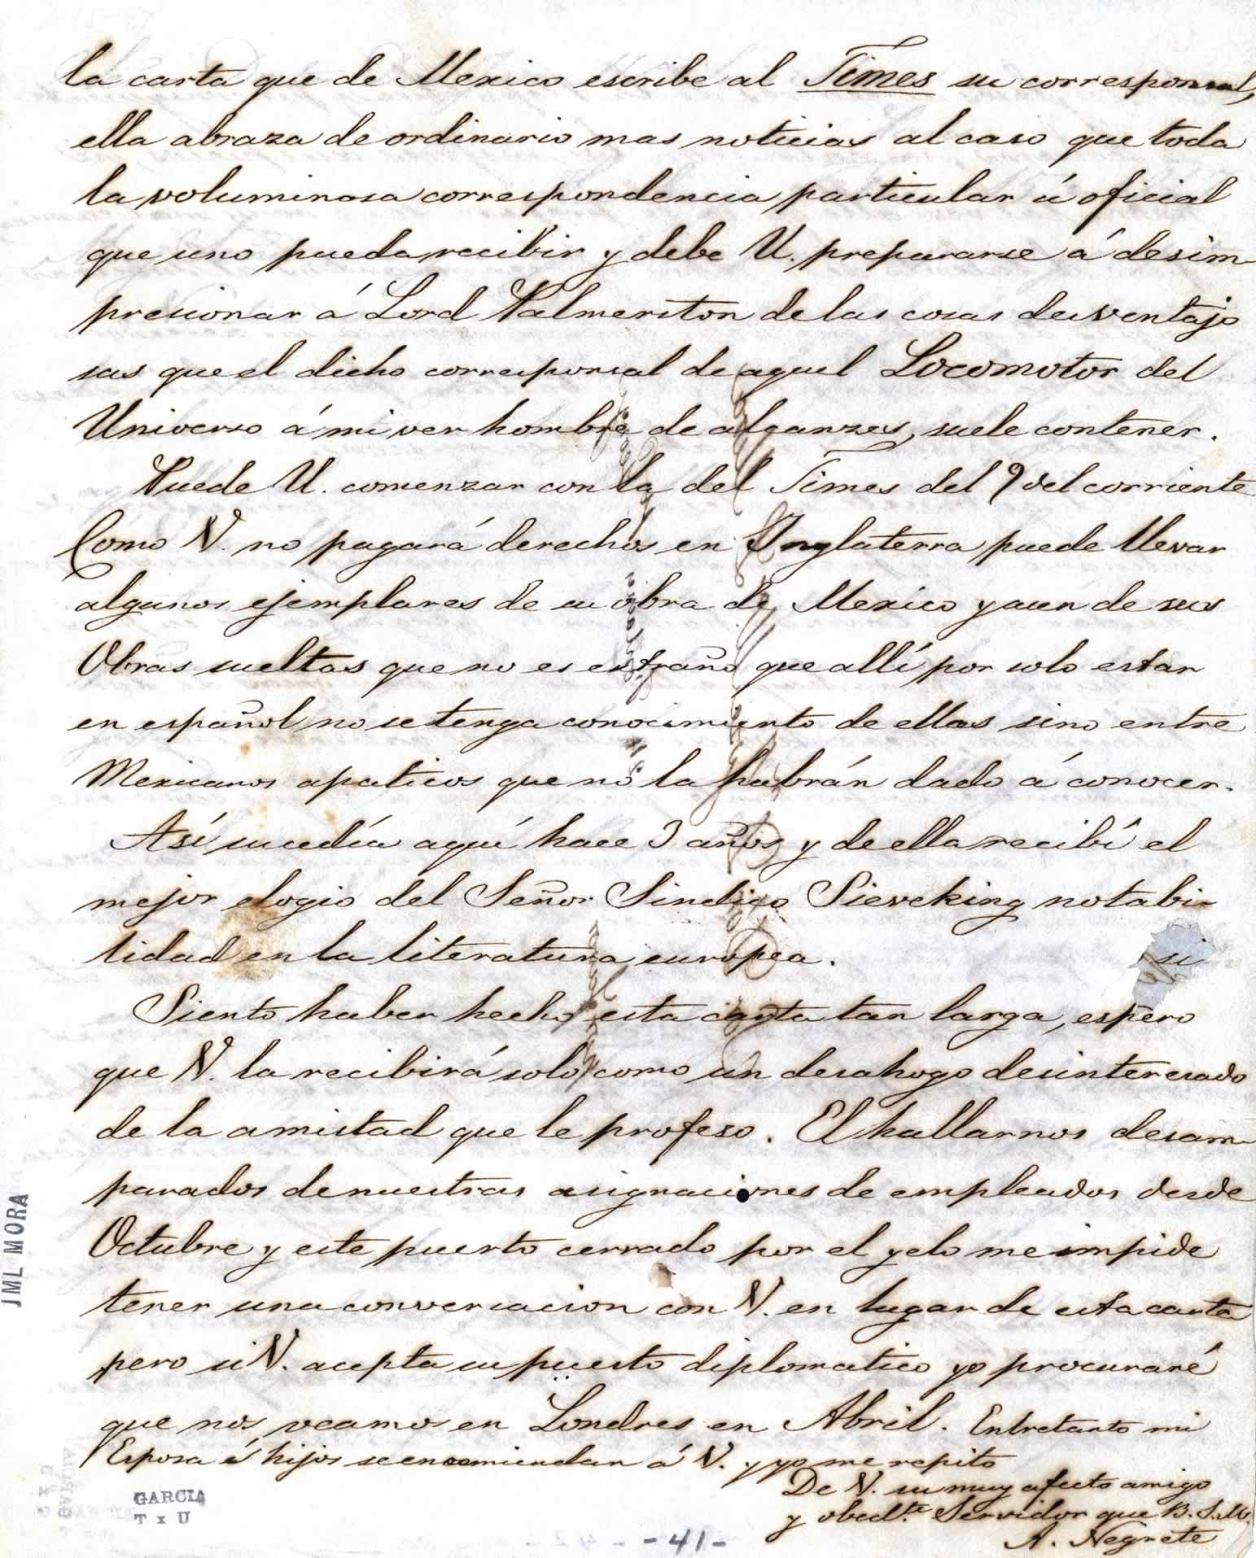 la carta que de Mexico escribe al Times su corresponsal,
ella abraza de ordinario mas noticias al caso que toda
la voluminosa correspondencia particular ú oficial
que uno pueda recibir y debe U. prepararse á desim-
presionar á Lord Palmerston de las cosas desventajo
sas que el dicho corresponsal de aquel Locomotor del
Universo á mi ver hombre de alganzes, suele contener.
Puede U. comenzar con la del Times del 9 del corriente
Como V. no pagará derechos en Inglaterra puede llevar
algunos ejemplares de su obra de Mexico y aun de sus
Obras sueltas que no es estraño que allí por solo estar
en español no se tenga conocimiento de ellas sino entre
Mexicanos apaticos que no la habrán dado á conocer.
Así sucedía aquí hace 3 años y de ella recibí el
mejor elogio del Señor Sindigo Sieveking notabi-
lidad en la literatura europea.
si
Siento haber hecho esta carta tan larga, espero
que V. la recibirá solo como un desahogo desinteresado
de la amistad que le profeso. El hallarnos desam-
parados de nuestras asignaciones de empleados desde
Octubre y este puerto cerrado por el yelo me impide
tener una conversacion con V. en lugar de esta carta
pero si V. acepta su puesto diplomatico yo procuraré
que nos veamos en Londres en Abril. Entretanto mi
Esposa é hijos se encomiendan á V. y yo me repito
De V. su muy afecto amigo
y obed.te Servidor que B.S.M.
A. Negrete
JML MORA
GARCIA
T x U
-41-